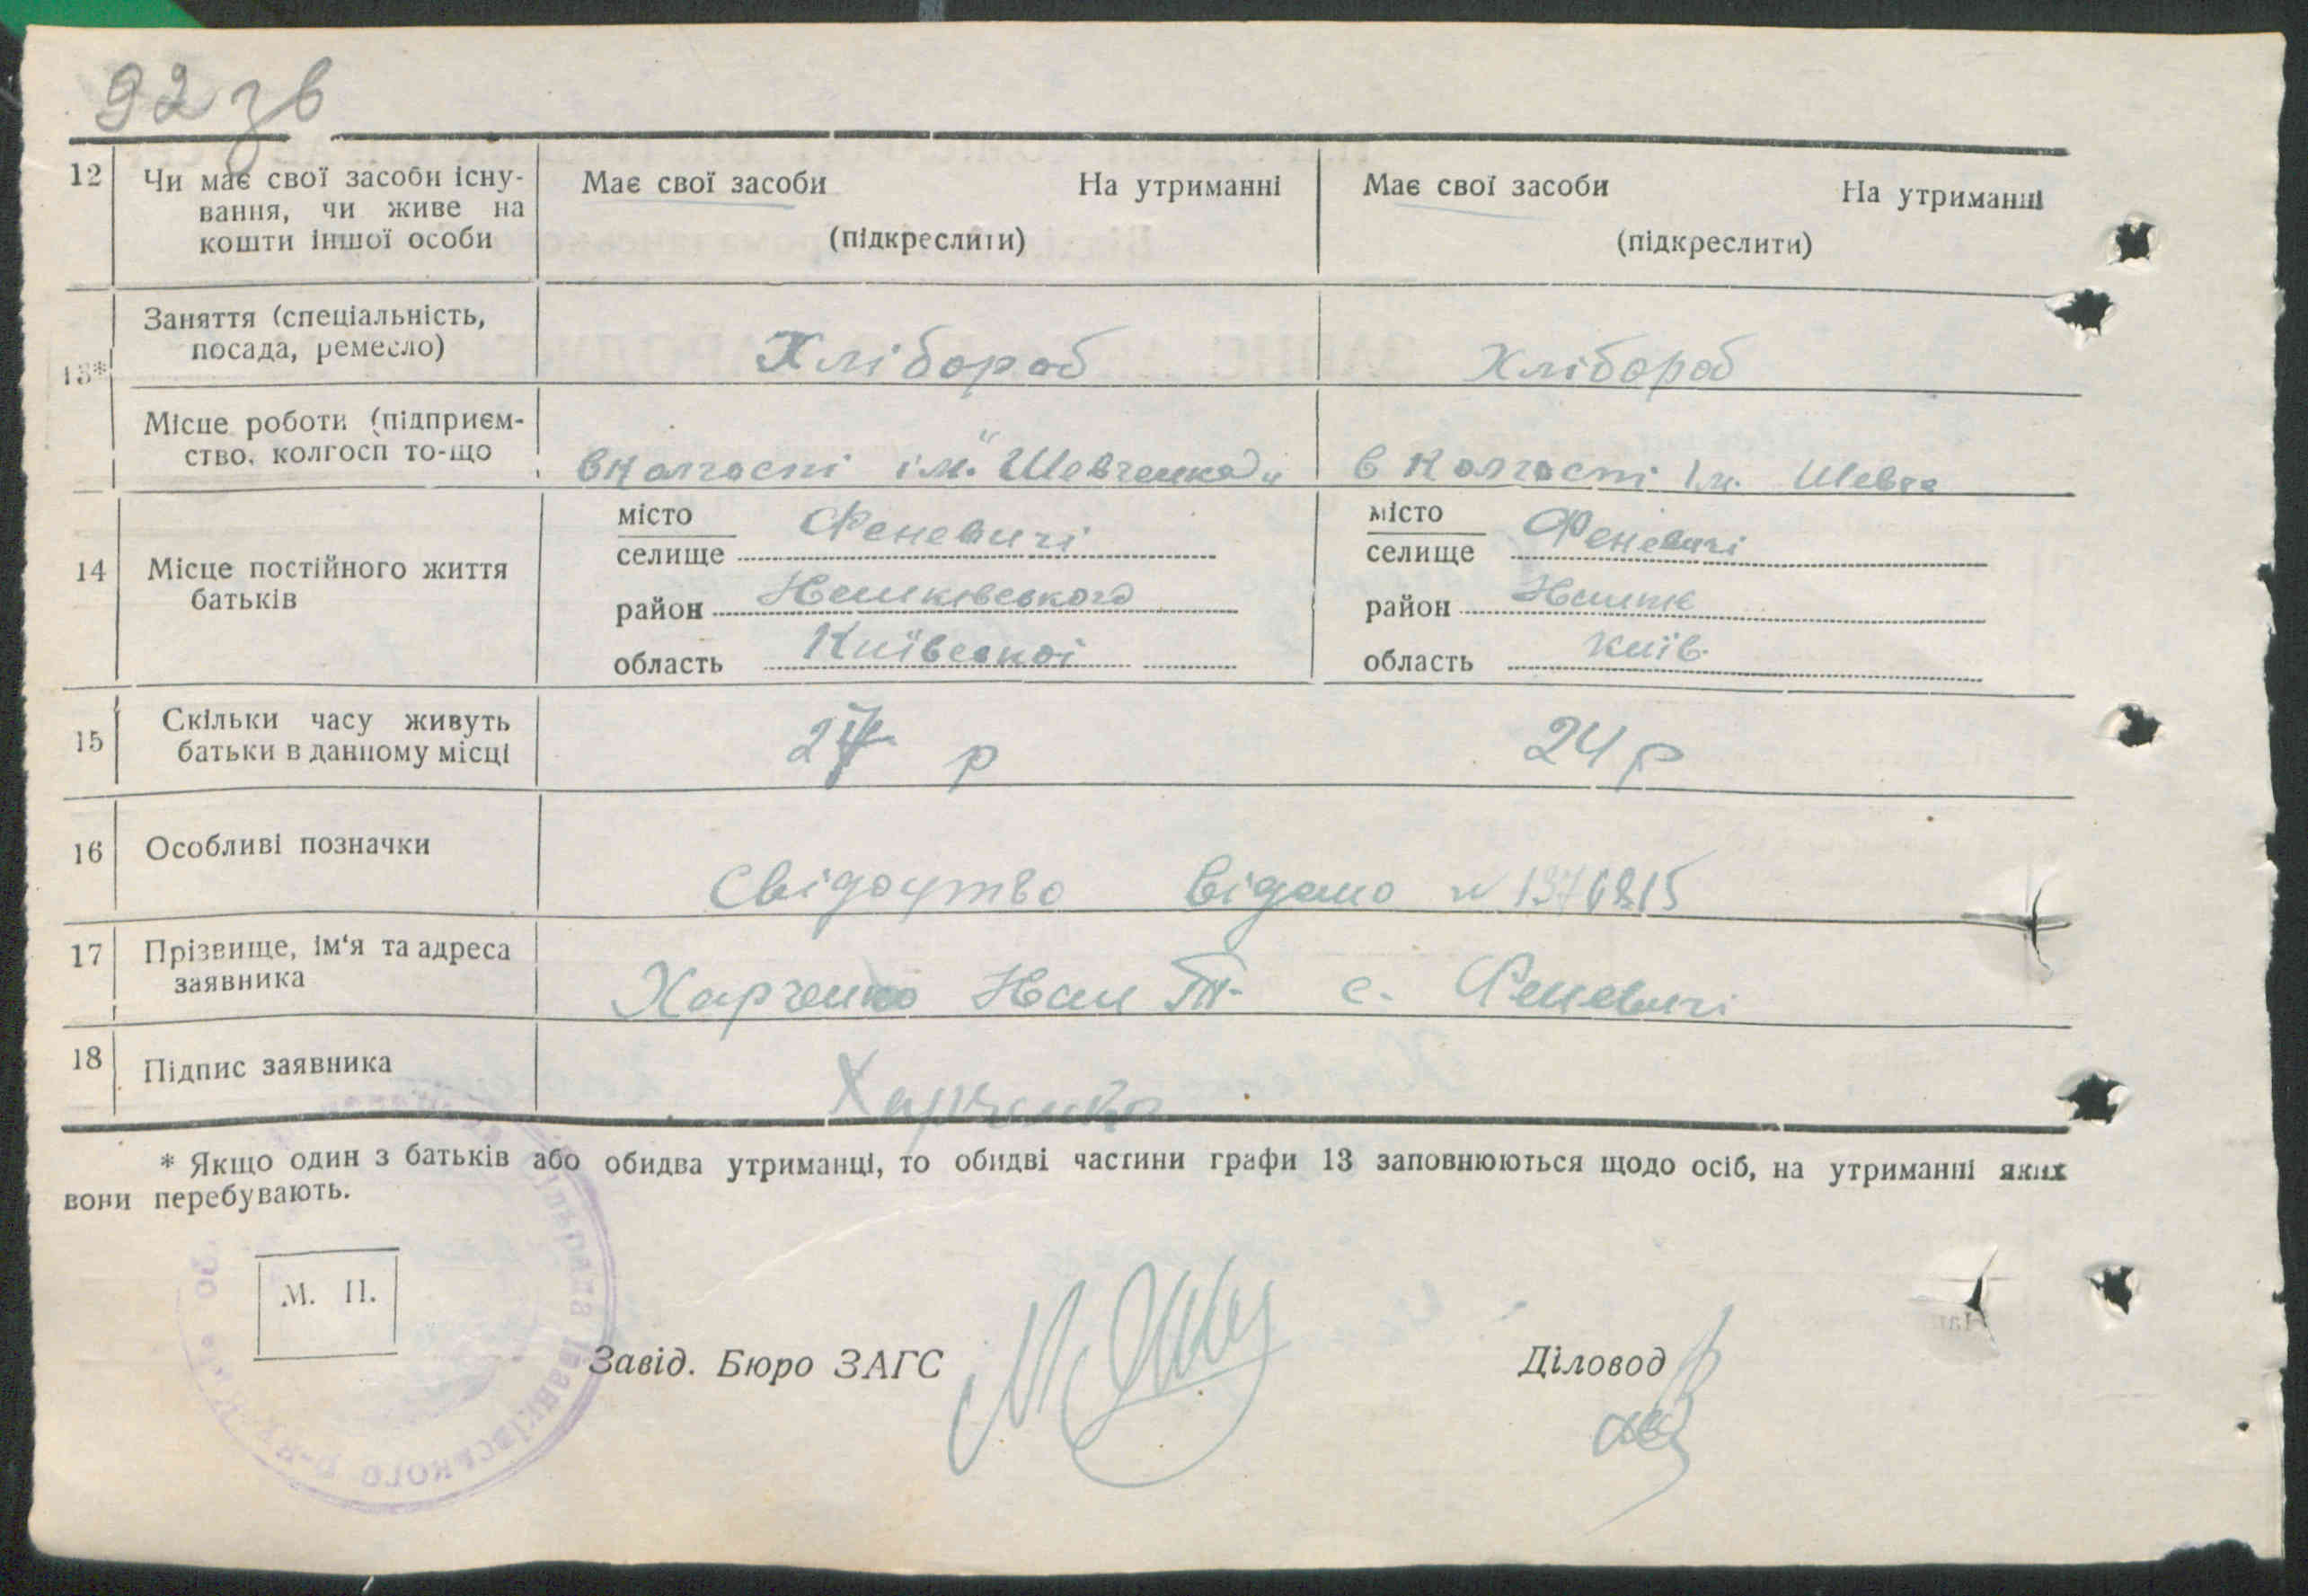 92 зв
12 Чи має свої засоби існу- Має свої засоби На утриманні Має свої засоби На утриманні
вання, чи живе на
кошти іншої особи (підкреслити) (підкреслити)
13* Заняття (спеціальність,
посада, ремесло) Хлібороб Хлібороб
Місце роботи (підприєм-
ство, колгосп то-що в колгоспі ім. "Шевченка" в колгоспі ім. Шевче
місто Феневичі місто Феневичі
селище селище
14 Місце постійного життя
батьків район район
область Київської область Київ.
15 Скільки часу живуть
батьки в данному місці 27 р 24 р
16 Особливі позначки
Свідоцтво відано №
17 Прізвище, ім'я та адреса
заявника Харченко Іван Т. с. Феневичі
18 Підпис заявника
Харченко
* Якщо один з батьків або обидва утриманці, то обидві частини графи 13 заповнюються щодо осіб, на утриманні яких
вони перебувають.
М. П.
Завід. Бюро ЗАГС Діловод
Іванківського р-ну